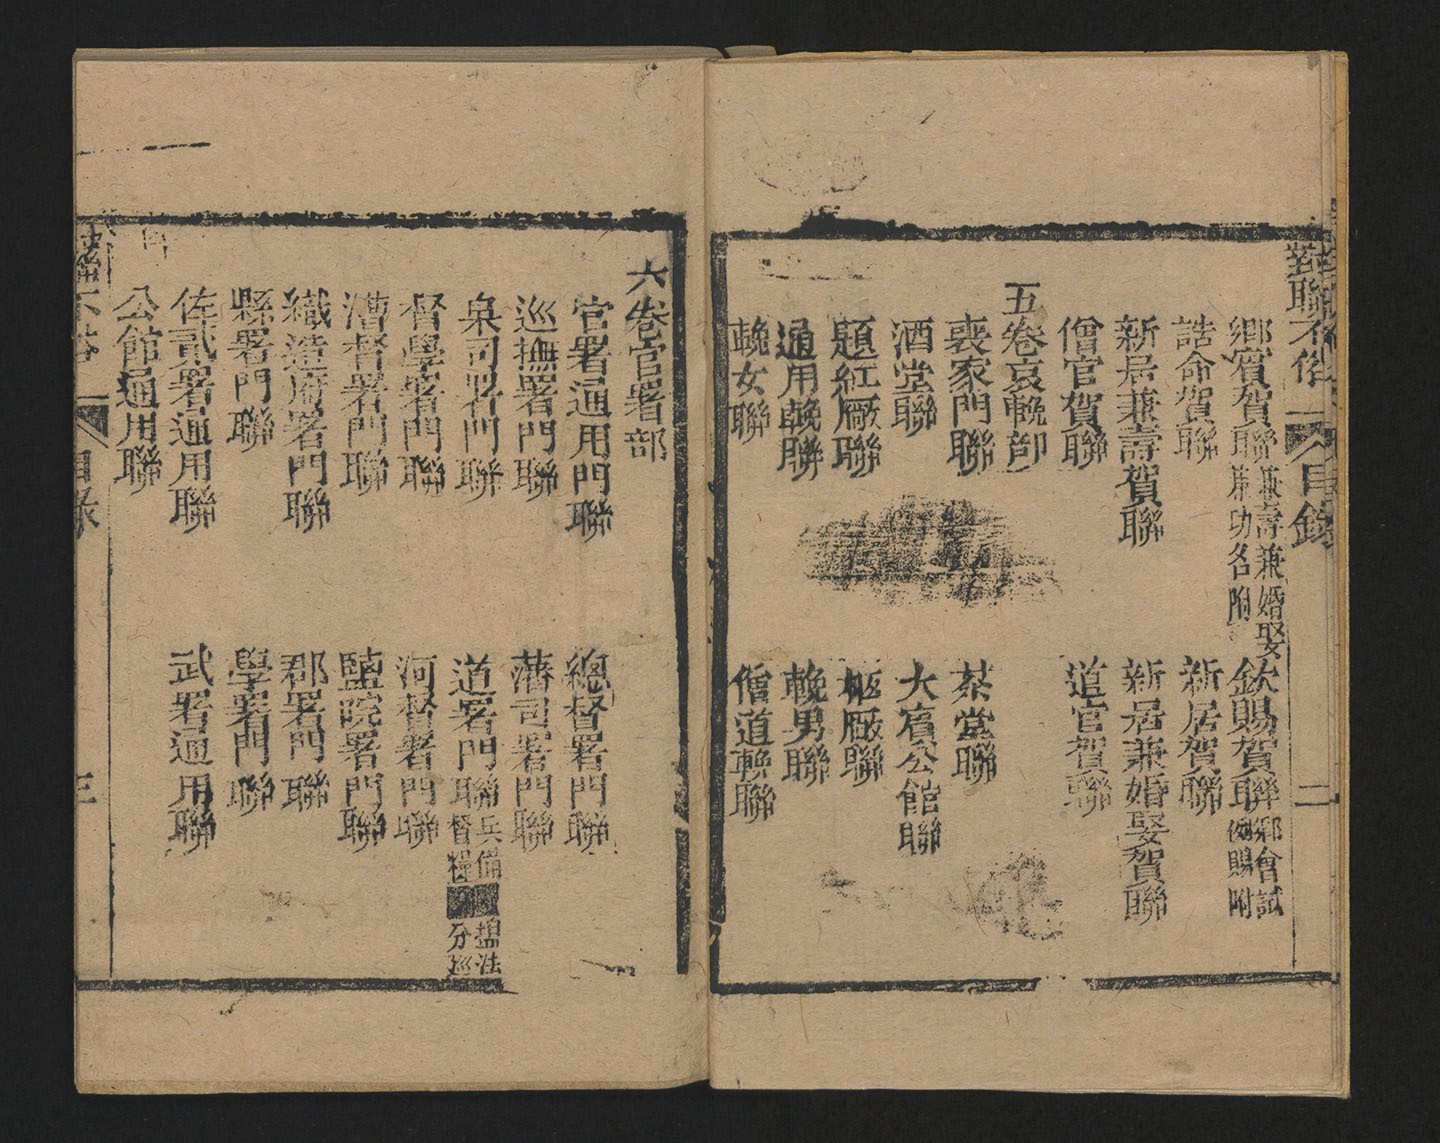 對聯不俗 目錄 二
鄉賓賀聯 兼壽兼婚娶 兼功名附 欽賜賀聯 鄉會試 例賜附
誥命賀聯 新居賀聯
新居兼壽賀聯 新居兼婚娶賀聯
僧官賀聯 道官賀聯
五卷哀輓部
喪家門聯 茶堂聯
酒堂聯 大賓公館聯
題紅厰聯 柩厰聯
通用輓聯 輓男聯
輓女聯 僧道輓聯
六卷官署部
官署通用門聯 總督署門聯
巡撫署門聯 藩司署門聯
臬司署門聯 道署門聯 兵備 鹽法 督糧 分巡
督學署門聯 河督署門聯
漕督署門聯 鹽院署門聯
織造府署門聯 郡署門聯
縣署門聯 學署門聯
佐貳署通用聯 武署通用聯
公館通用聯
不俗 目錄 三